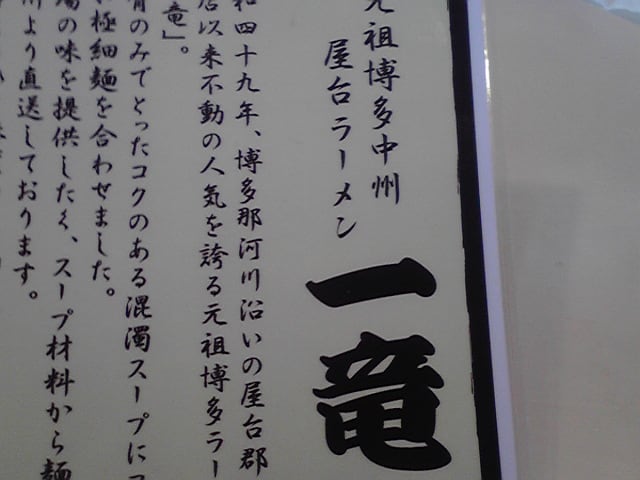 元祖博多中州
屋台ラーメン
一竜
和四十九年、博多那河川沿いの屋台郡
店以来不動の人気を誇る元祖博多ラー
竜」。
骨のみでとったコクのある混濁スープに
極細麺を合わせました。
場の味を提供したく、スープ材料から麺
州より直送しております。